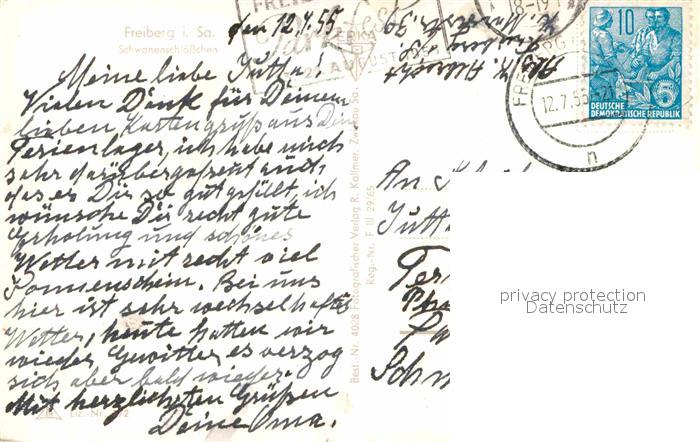 Freiberg i. Sa.
Schwanenschlößchen
den 12.7.55
Meine liebe Jutta!
Vielen Dank für Deinen
lieben Kartengruß aus Dein
Ferienlager, ich habe mich
sehr darüber gefreut auch,
das es Dir so gut gefällt, ich
wünsche Dir recht gute
Erholung und schönes
Wetter mit recht viel
Sonnenschein. Bei uns
hier ist sehr wechselhaftes
Wetter, heute hatten wir
wieder Gewitter es verzog
sich aber bald wieder.
Mit herzlichsten Grüßen
Deine Oma.
Liz.-Nr.
Best.-Nr. 4028 Fotografischer Verlag R. Kallmer, Zwickau Sa.
Reg.-Nr. F III 29/65
AUGUST
8-19
10
5
DEUTSCHE
DEMOKRATISCHE REPUBLIK
12.7.55
n
An
Jutta
privacy protection
Datenschutz